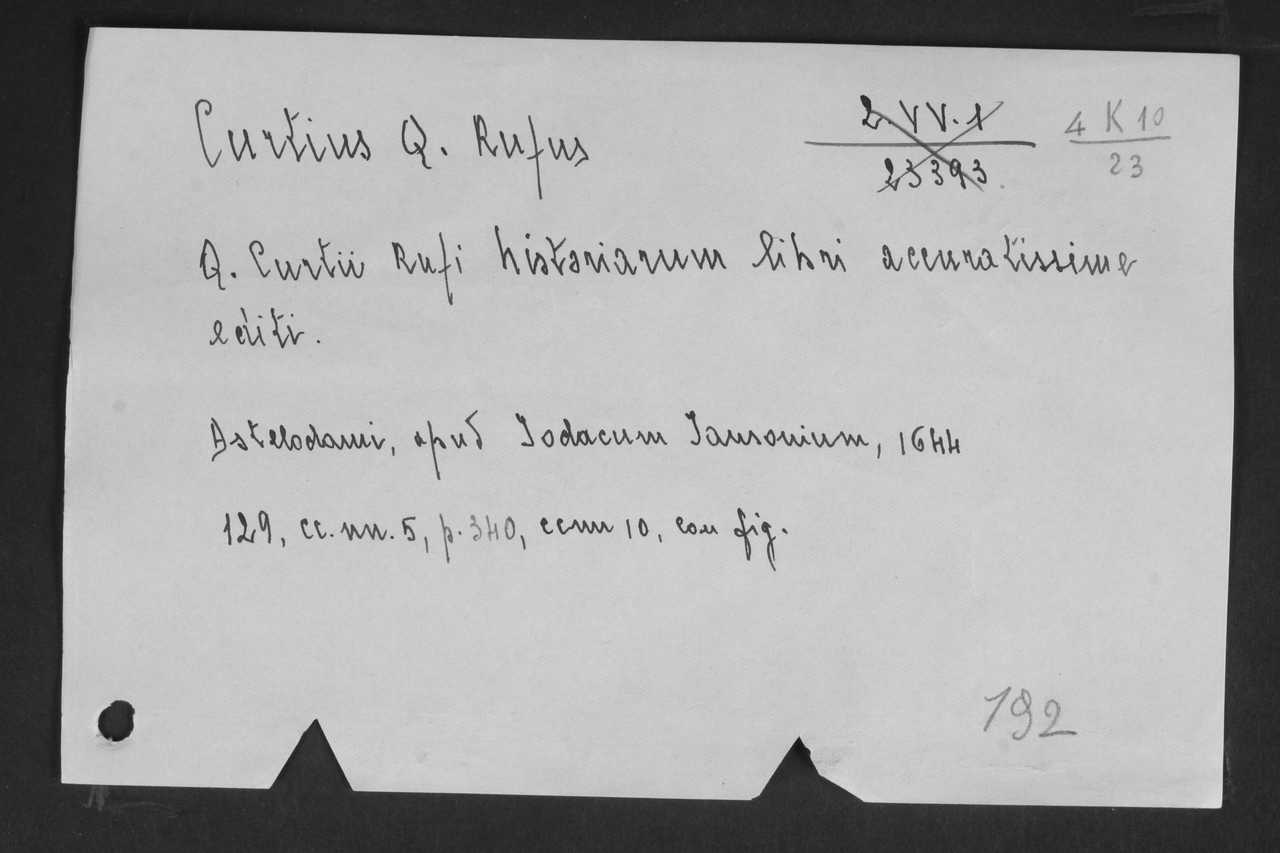 Curtius Q. Rufus
2. VV. 1
23393.
4 K 10
23
Q. Curtii Rufi historiarum libri accuratissime
editi.
Astelodami, apud Jodacum Jansonium, 1644
129, cc. nn. 5, p. 340, ccnn 10, con fig.
192